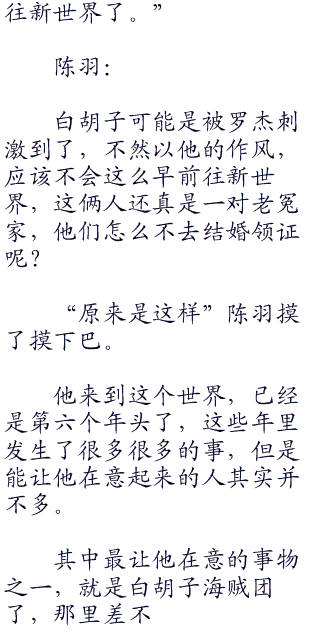 往新世界了。”
陈羽：
白胡子可能是被罗杰刺
激到了，不然以他的作风，
应该不会这么早前往新世
界，这俩人还真是一对老冤
家，他们怎么不去结婚领证
呢？
“原来是这样”陈羽摸
了摸下巴。
他来到这个世界，已经
是第六个年头了，这些年里
发生了很多很多的事，但是
能让他在意起来的人其实并
不多。
其中最让他在意的事物
之一，就是白胡子海贼团
了，那里差不